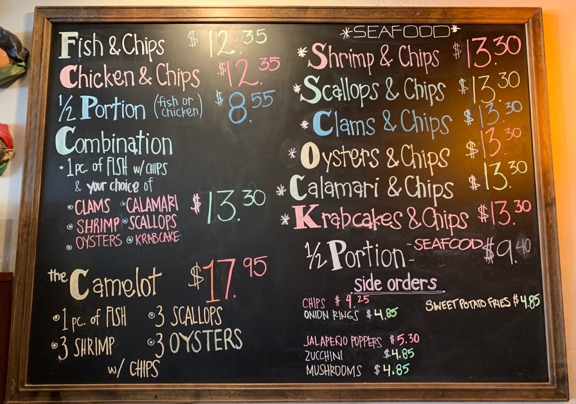 Fish & Chips $12.35
Chicken & Chips $12.35
1/2 Portion (fish or chicken) $8.55
Combination
• 1 pc. of FISH w/ CHIPS
& your choice of
• CLAMS • CALAMARI
• SHRIMP • SCALLOPS
• OYSTERS • KRABCAKE
$13.30
the Camelot $17.95
• 1 pc. of FISH • 3 SCALLOPS
• 3 SHRIMP • 3 OYSTERS
w/ CHIPS
*SEAFOOD*
* Shrimp & Chips $13.30
* Scallops & Chips $13.30
* Clams & Chips $13.30
* Oysters & Chips $13.30
* Calamari & Chips $13.30
* Krabcakes & Chips $13.30
1/2 Portion - SEAFOOD $9.40
side orders
CHIPS $4.25 SWEET POTATO FRIES $4.85
ONION RINGS $4.85
JALAPEÑO POPPERS $5.30
ZUCCHINI $4.85
MUSHROOMS $4.85